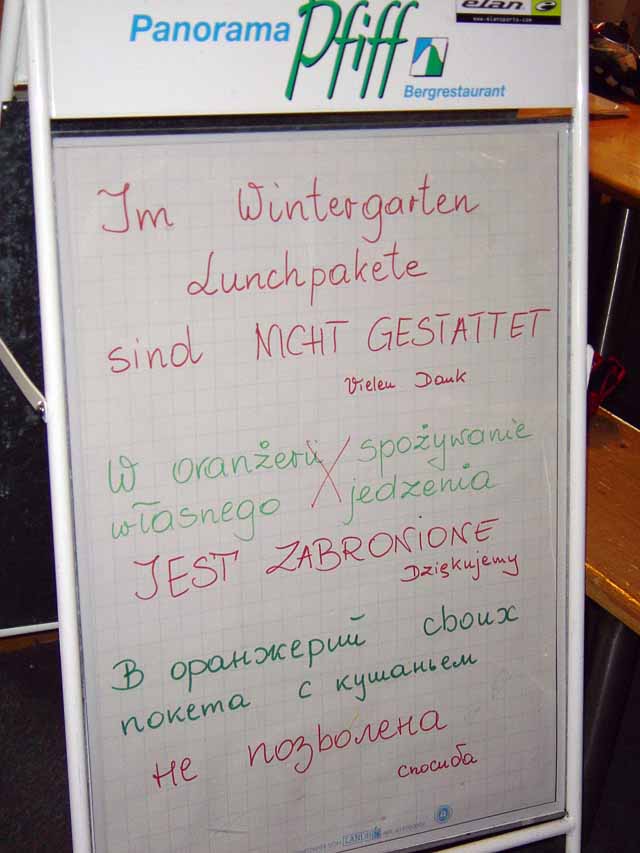 elan
www.elansports.com
Panorama Pfiff
Bergrestaurant
Im Wintergarten
Lunchpakete
sind NICHT GESTATTET
Vielen Dank
W oranżerii spożywanie
własnego jedzenia
JEST ZABRONIONE
Dziękujemy
В оранжерий своих
покета с кушаньем
не позволена
спосиба